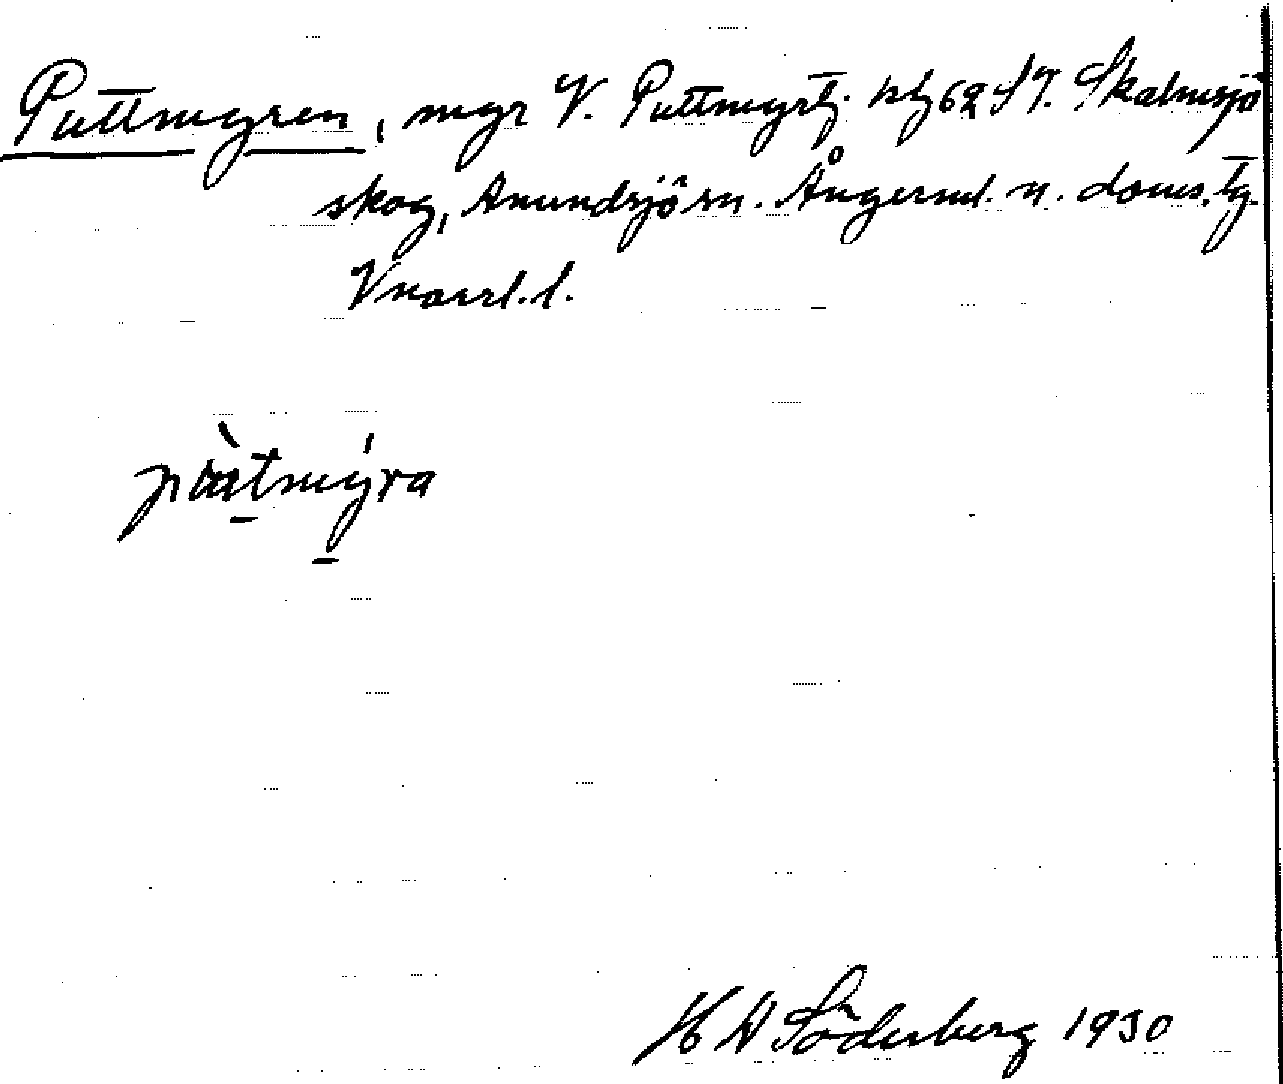 Puttmyren, myr V. Puttmyrtj. kbl 62 ST. Skalmsjö
skog, Anundsjö sn. Ångerml. n. doms. tg.
Vnorrl. l.
pùtmýra
H A Söderberg 1930